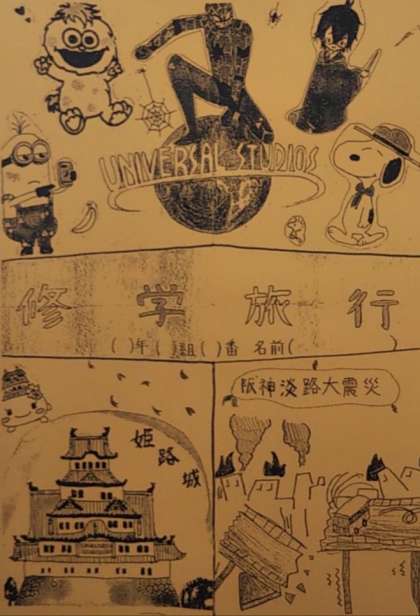 UNIVERSAL STUDIOS
修学旅行
( )年( )組( )番 名前( )
姫路城
阪神淡路大震災